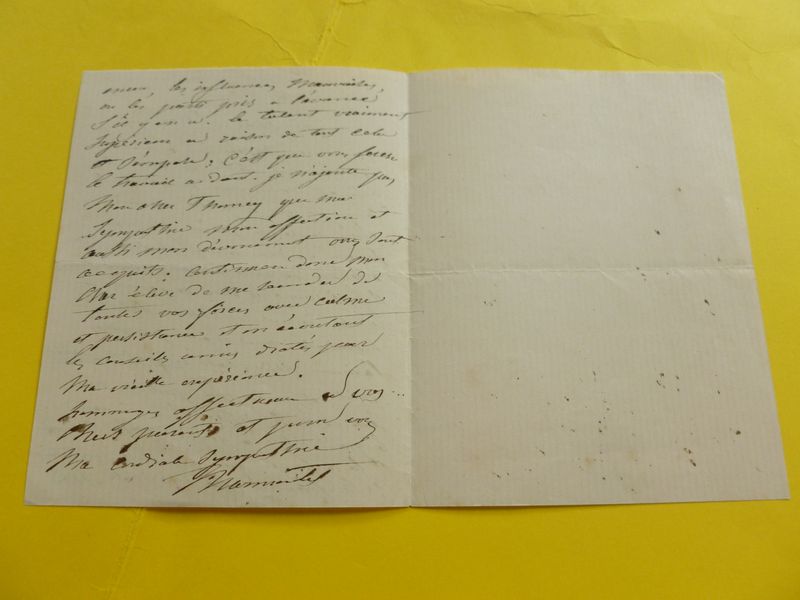 les influences mauvaises,
ou les partis pris a l'avance
s'il y en a. le talent vraiment
supérieur a raison de tout cela
et c'est que vous ferez
le travail aidant. je n'ajoute pas
Mon cher Thomey que ma
sympathie mon affection et
aussi mon dévouement vous sont
acquis. continuez donc mon
cher élève de me seconder de
toutes vos forces avec calme
et persistance et en écoutant
les conseils amis dictés par
Ma vieille expérience.
hommages affectueux a vos
chers parents et pour vous
Ma cordiale sympathie
Marmontel